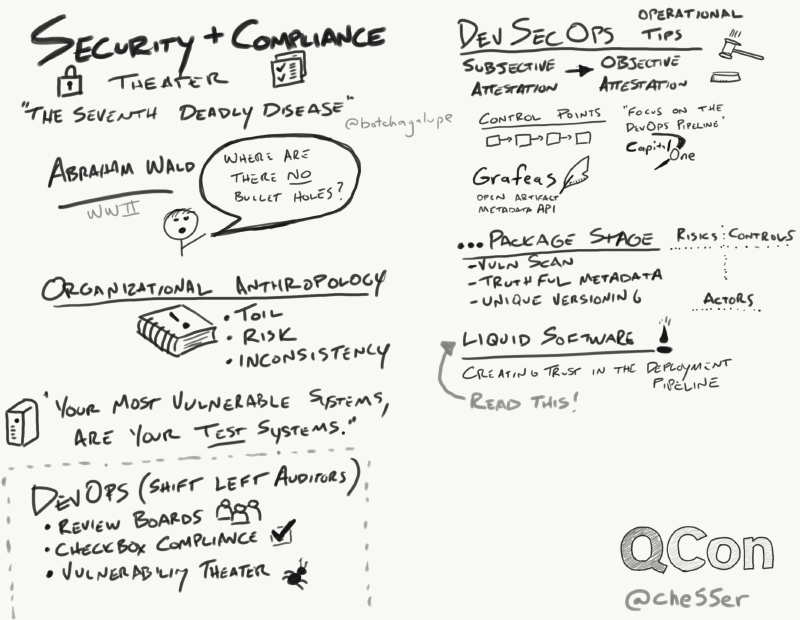 SECURITY + COMPLIANCE
THEATER
"THE SEVENTH DEADLY DISEASE"
@botchagalupe
ABRAHAM WALD
WWII
WHERE ARE
THERE NO
BULLET HOLES?
ORGANIZATIONAL ANTHROPOLOGY
• TOIL
• RISK
• INCONSISTENCY
"YOUR MOST VULNERABLE SYSTEMS,
ARE YOUR TEST SYSTEMS."
DEVOPS (SHIFT LEFT AUDITORS)
• REVIEW BOARDS
• CHECKBOX COMPLIANCE
• VULNERABILITY THEATER
DEVSECOPS OPERATIONAL
TIPS
SUBJECTIVE → OBJECTIVE
ATTESTATION ATTESTATION
CONTROL POINTS
"FOCUS ON THE
DEVOPS PIPELINE"
Capital
One
Grafeas
OPEN ARTIFACT
METADATA API
...PACKAGE STAGE
- VULN SCAN
- TRUTHFUL METADATA
- UNIQUE VERSIONING
RISKS CONTROLS
ACTORS
LIQUID SOFTWARE
CREATING TRUST IN THE DEPLOYMENT
PIPELINE
READ THIS!
QCon
@che55er